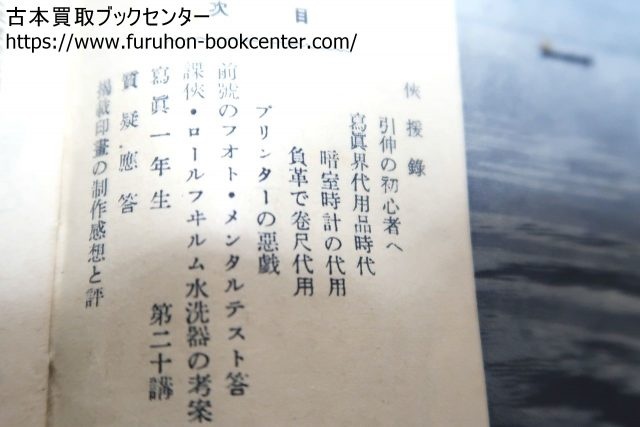 古本買取ブックセンター
https://www.furuhon-bookcenter.com/
目次
俠援錄
引伸の初心者へ
寫眞界代用品時代
暗室時計の代用
負革で卷尺代用
プリンターの惡戲
前號のフオト・メンタルテスト答
諜俠・ロールフヰルム水洗器の考案
寫眞一年生 第二十講
質疑應答
揭載印畫の制作感想と評